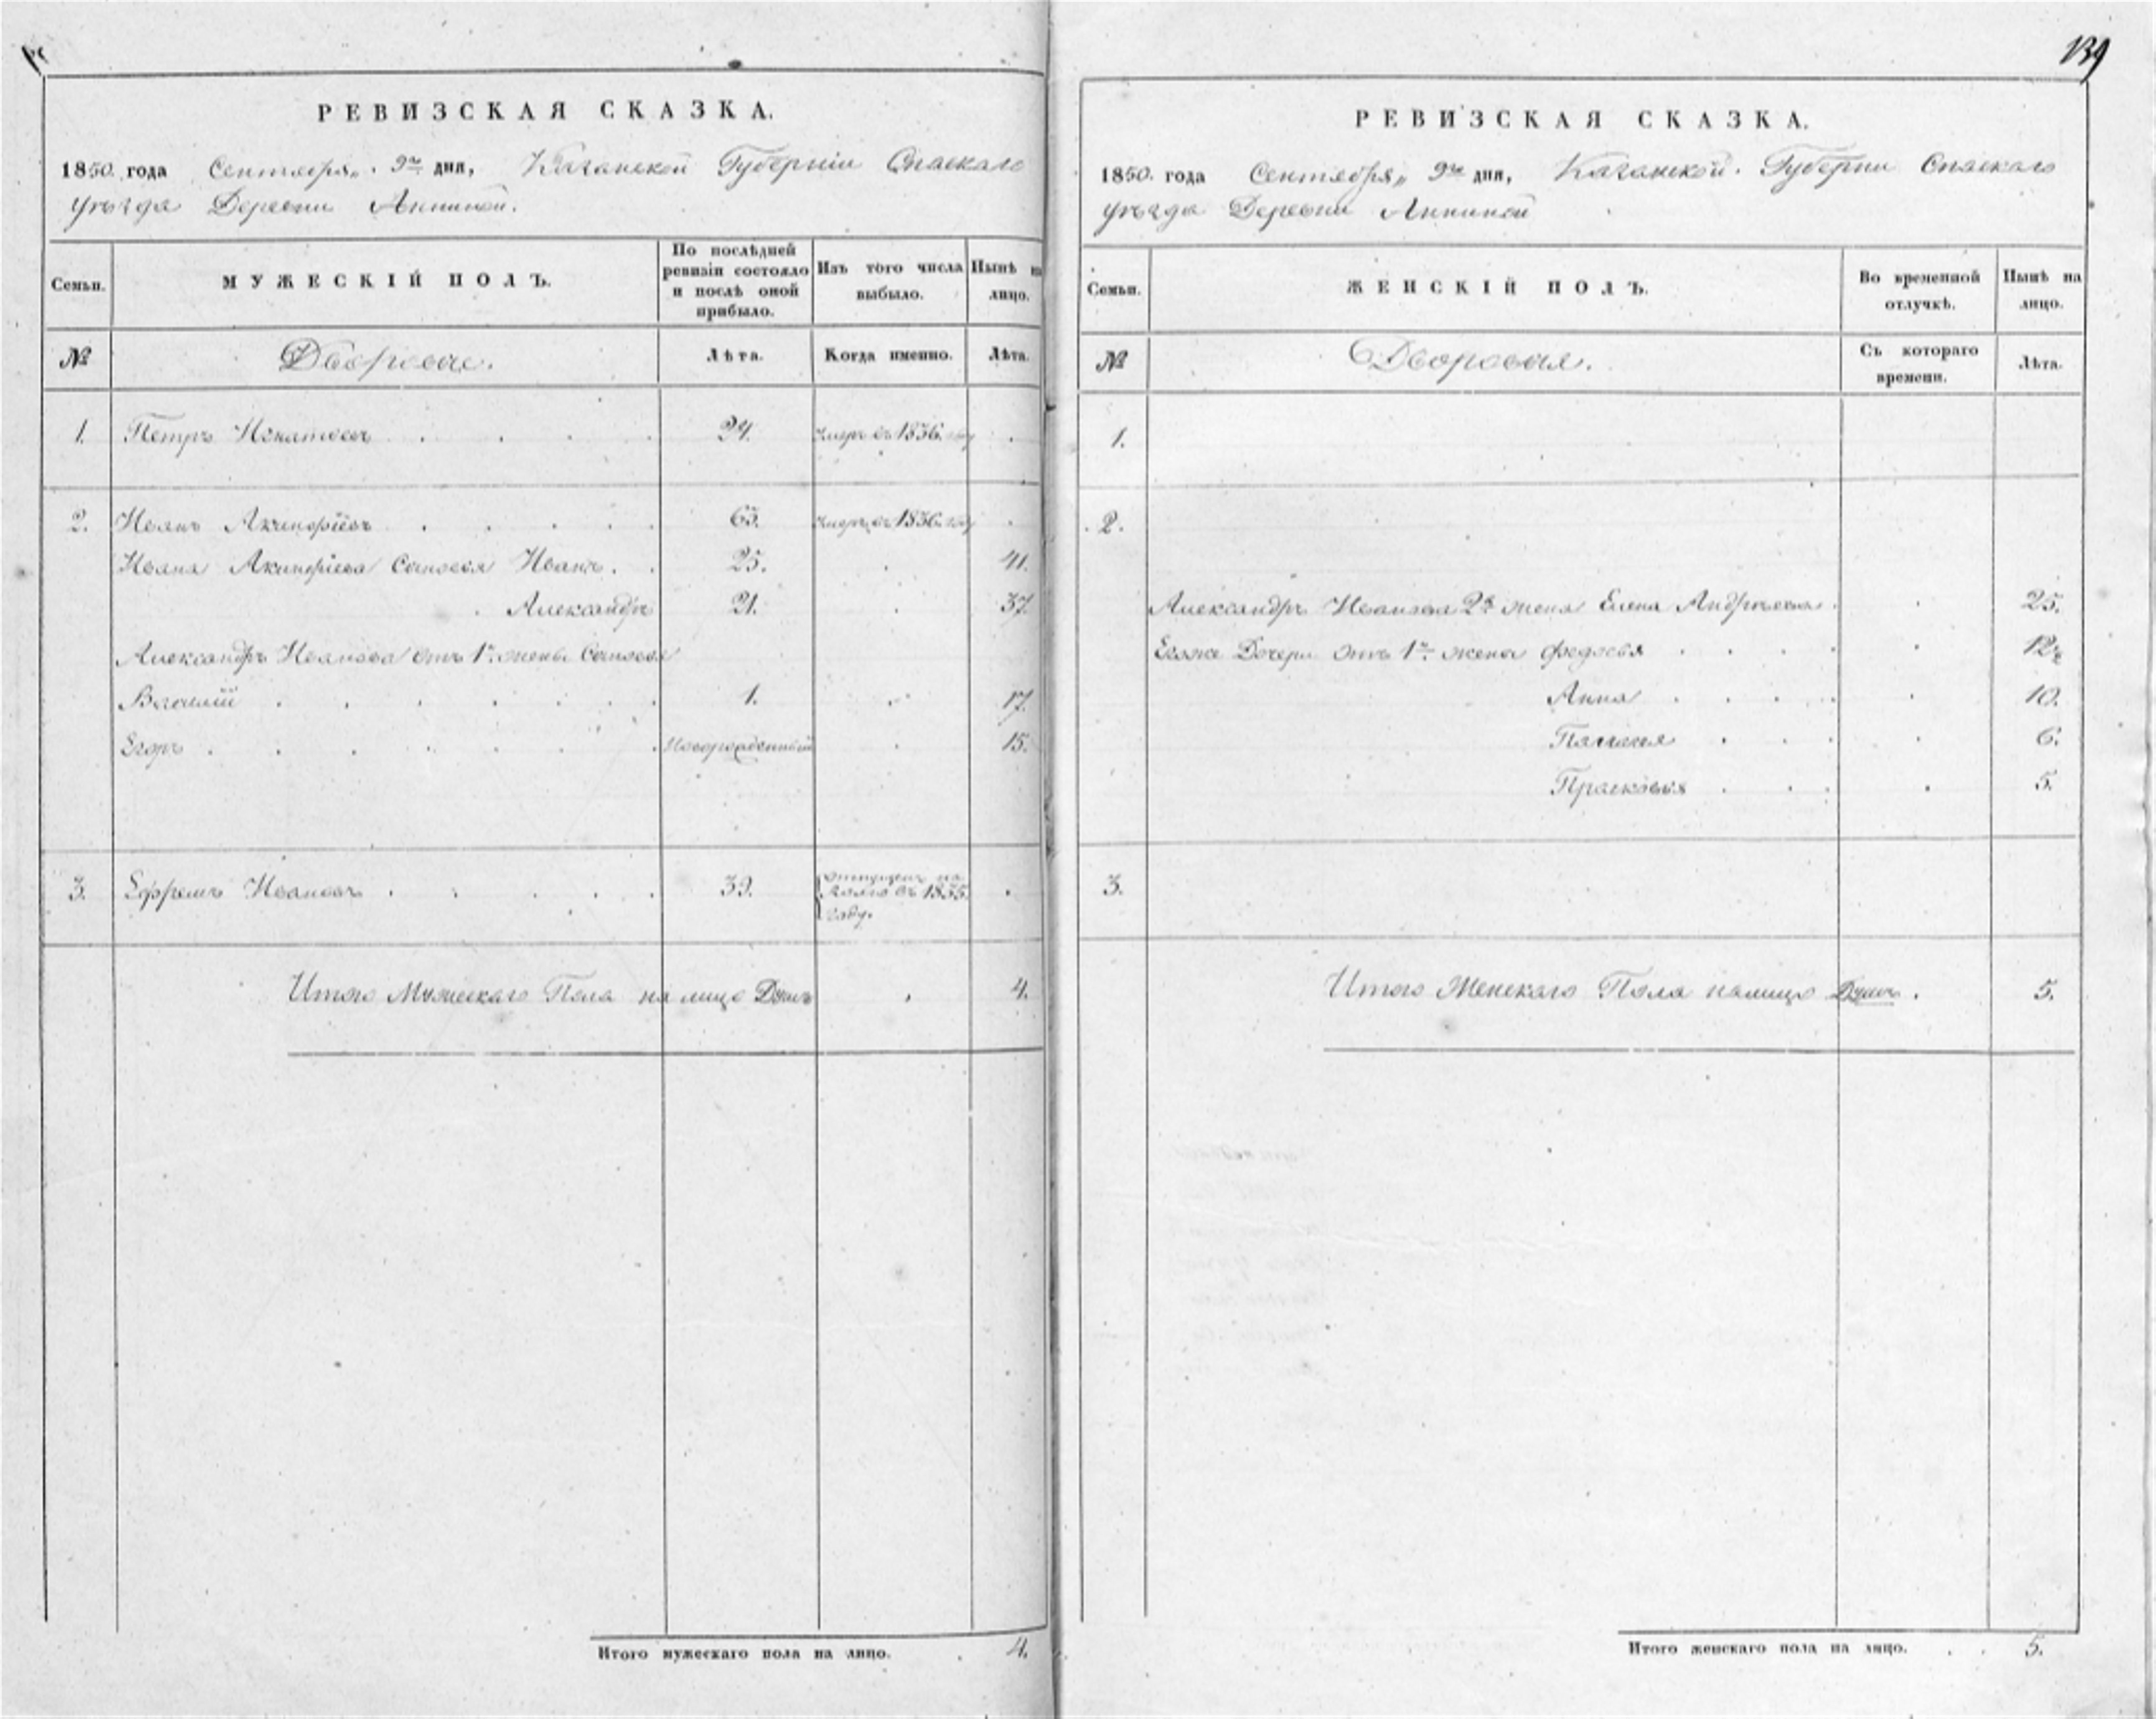 РЕВИЗСКАЯ СКАЗКА.
1850 года Сентября 9го дня, Казанской Губерніи Спаскаго
уѣзда Деревни Анниной.
Семьи. МУЖЕСКІЙ ПОЛЪ. По послѣдней ревизіи состояло и послѣ оной прибыло. Изъ того числа выбыло. Нынѣ на лицо.
№ Дворовые. Лѣта. Когда именно. Лѣта.
1. Петръ 24. Умеръ въ 1836. году
2. Иванъ 63. Умеръ въ 1836. году
Ивана Сыновья Иванъ. 25. 41.
Александръ 21. 37.
Александра Иванова отъ 1й жены Сыновья
Василій 1. 17.
Егоръ Новорожденный 15.
3. Ефремъ Ивановъ 39. Отпущенъ на
волю въ 1835.
году.
Итого Мужескаго Пола на лицо Душъ 4.
Итого мужескаго пола на лицо. 4.
139
РЕВИЗСКАЯ СКАЗКА.
1850 года Сентября 9го дня, Казанской Губерніи Спаскаго
уѣзда Деревни Анниной
Семьи. ЖЕНСКІЙ ПОЛЪ. Во временной отлучкѣ. Нынѣ на лицо.
№ Дворовыя. Съ котораго времени. Лѣта.
1.
2.
Александра Иванова 2я жена Елена Андреева 25.
Егоже Дочери отъ 1й жены Федосья 12½
Анна 10.
6.
Прасковья 5.
3.
Итого Женскаго Пола налицо Душъ. 5.
Итого женскаго пола на лицо. 5.